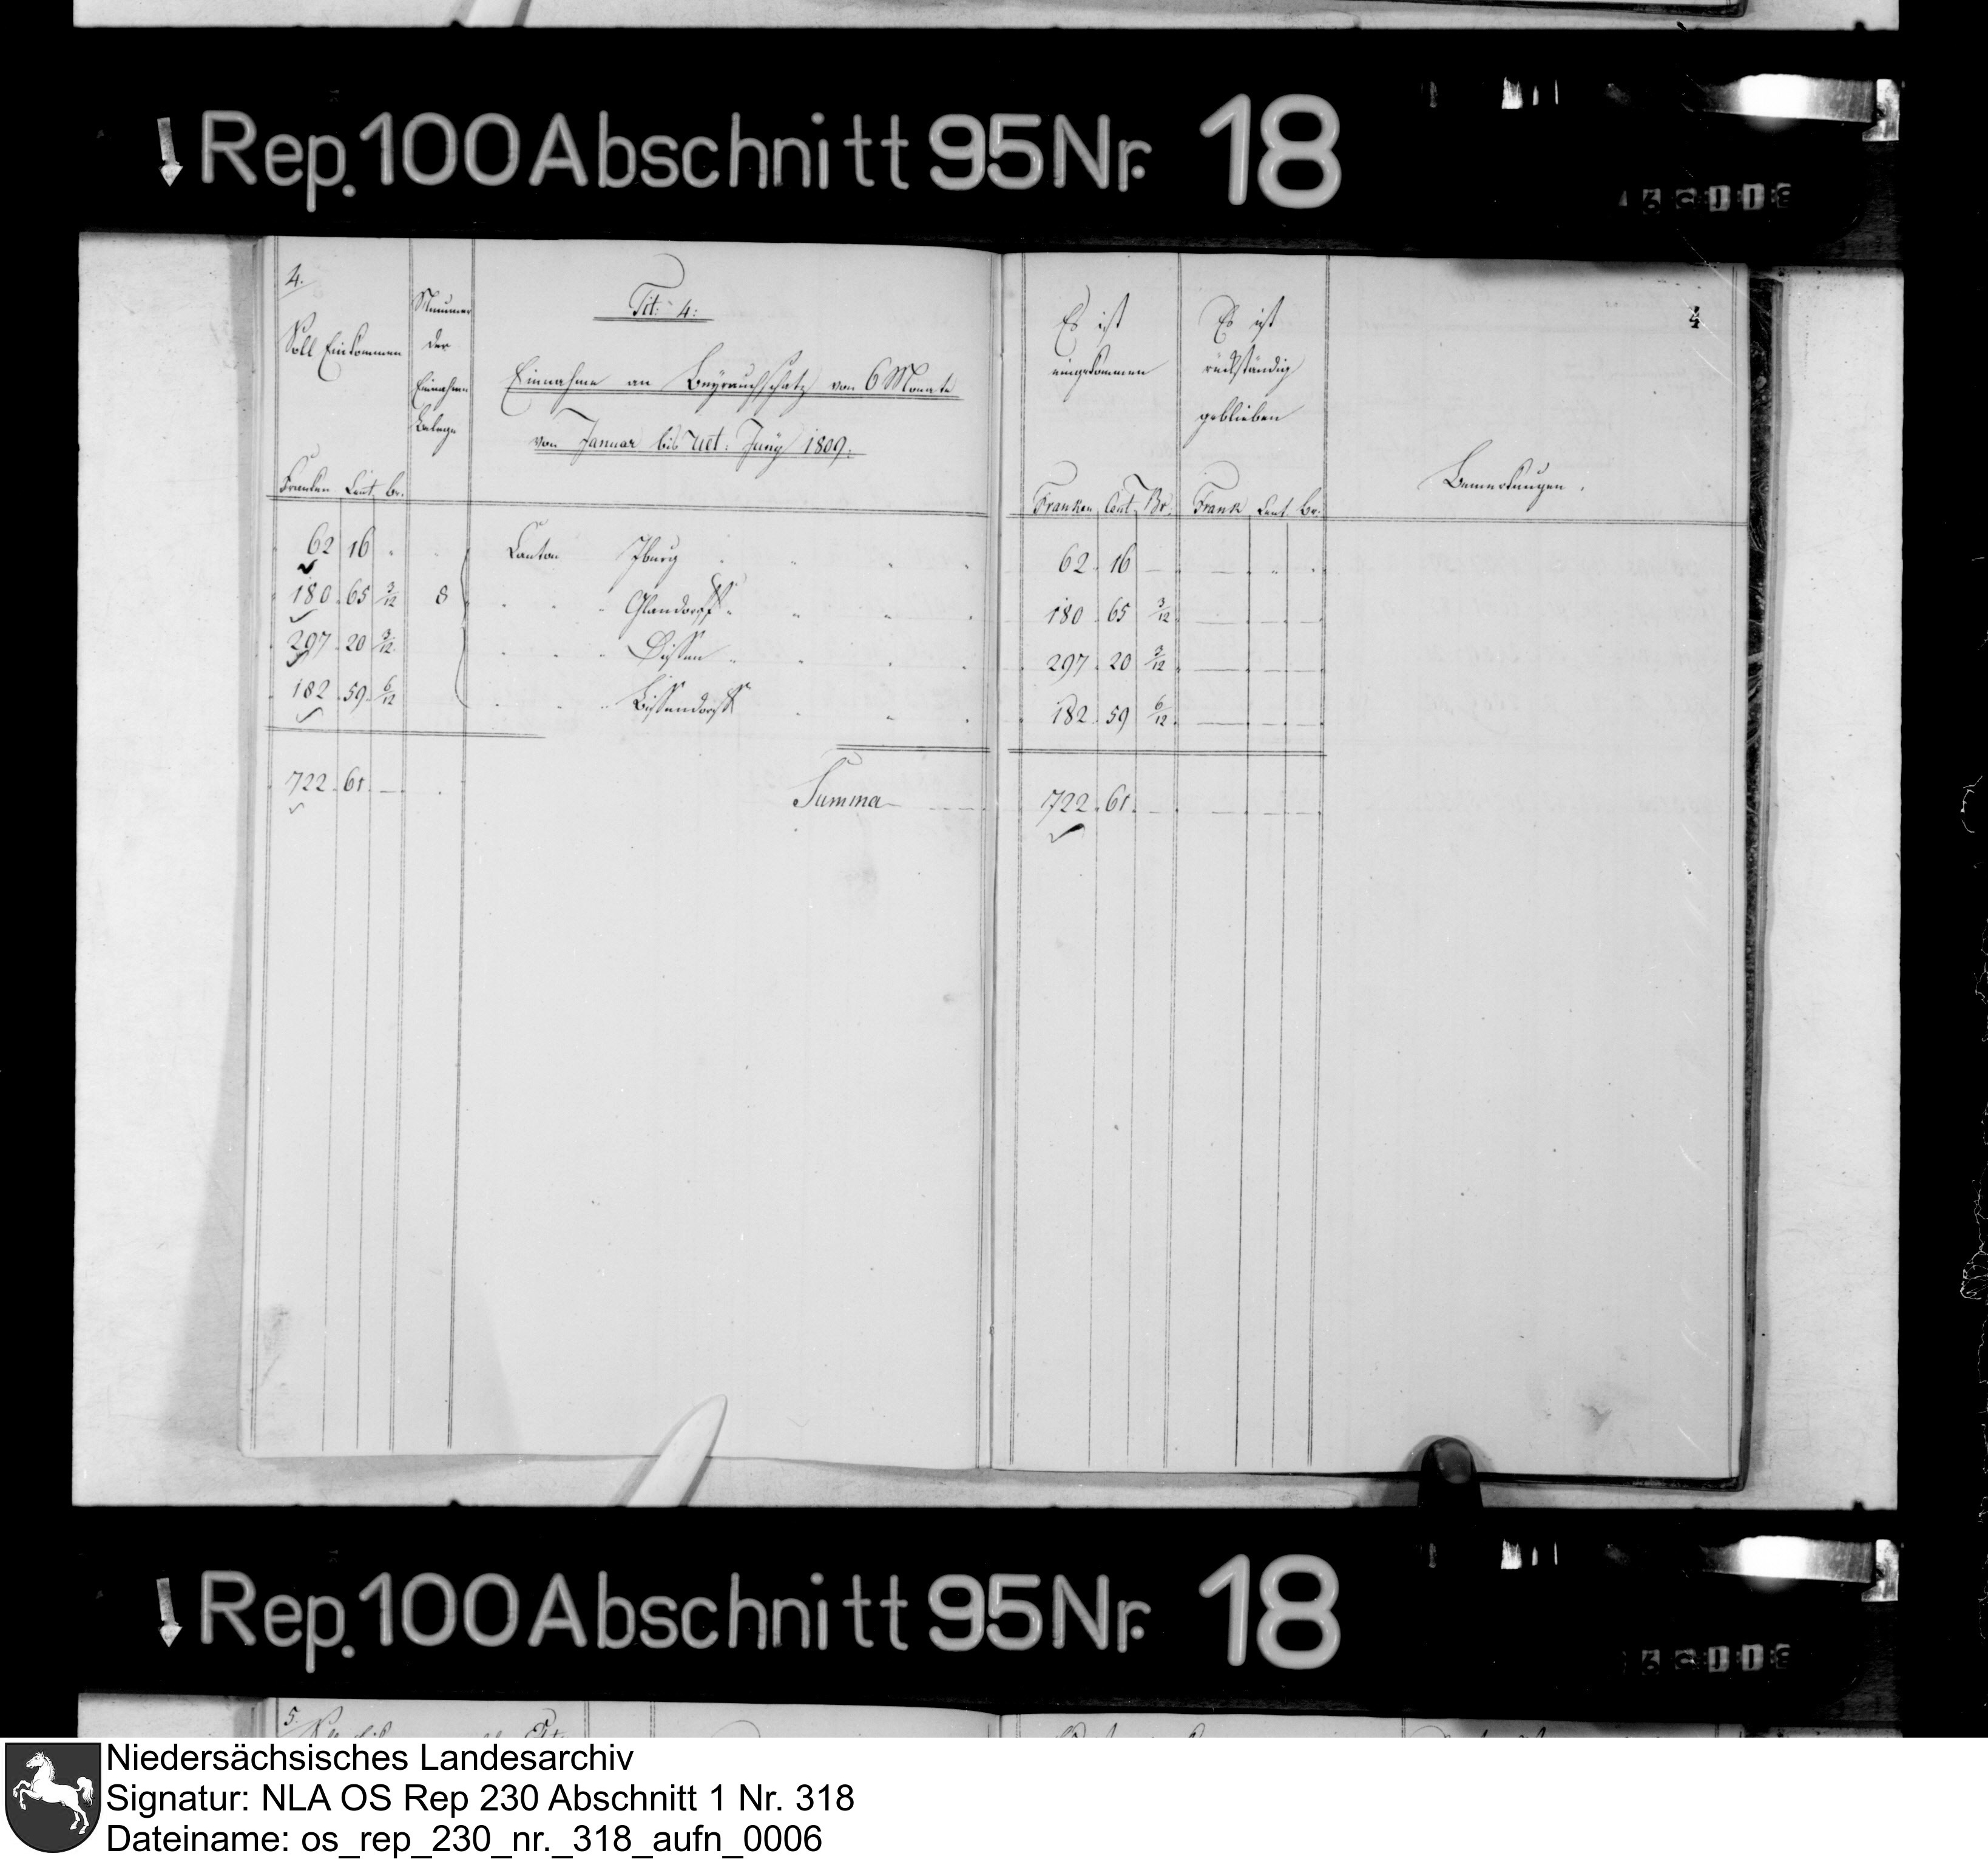 Rep. 100 Abschnitt 95 Nr. 18
4.
Soll Einkommen
Franken Cent. Br.
Nummer
der
Einnahme
Belege
Tit: 4:
Einnahme an Beyrauchschatz von 6 Monate
von Januar bis ult: Juny 1809.
Es ist
eingekommen
Franken Cent. Br.
Es ist
rückständig
geblieben
Frank Cent Br.
4
Bemerkungen.
62 16 Canton Iburg 62 16 —
180 65 3/12 8 Glandorff 180 65 3/12
297 20 3/12 Dissen 297 20 3/12
182 59 6/12 Bissendorff 182 59 6/12
722 61 — Summa 722 61 —
Rep. 100 Abschnitt 95 Nr. 18
5.
Niedersächsisches Landesarchiv
Signatur: NLA OS Rep 230 Abschnitt 1 Nr. 318
Dateiname: os_rep_230_nr._318_aufn_0006